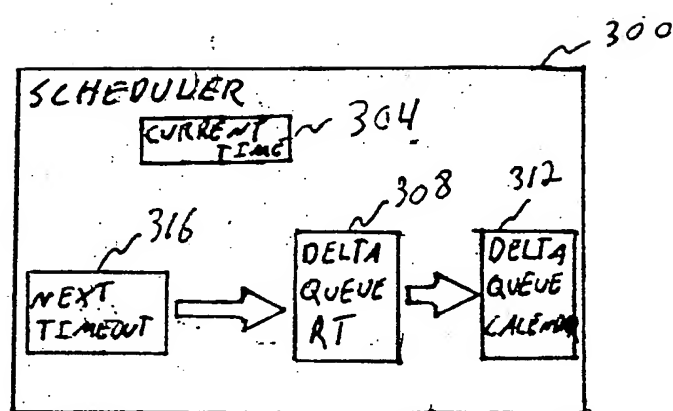 300
SCHEDULER
CURRENT
TIME
304
316
308
312
NEXT
TIMEOUT
DELTA
QUEUE
RT
DELTA
QUEUE
CALENDAR